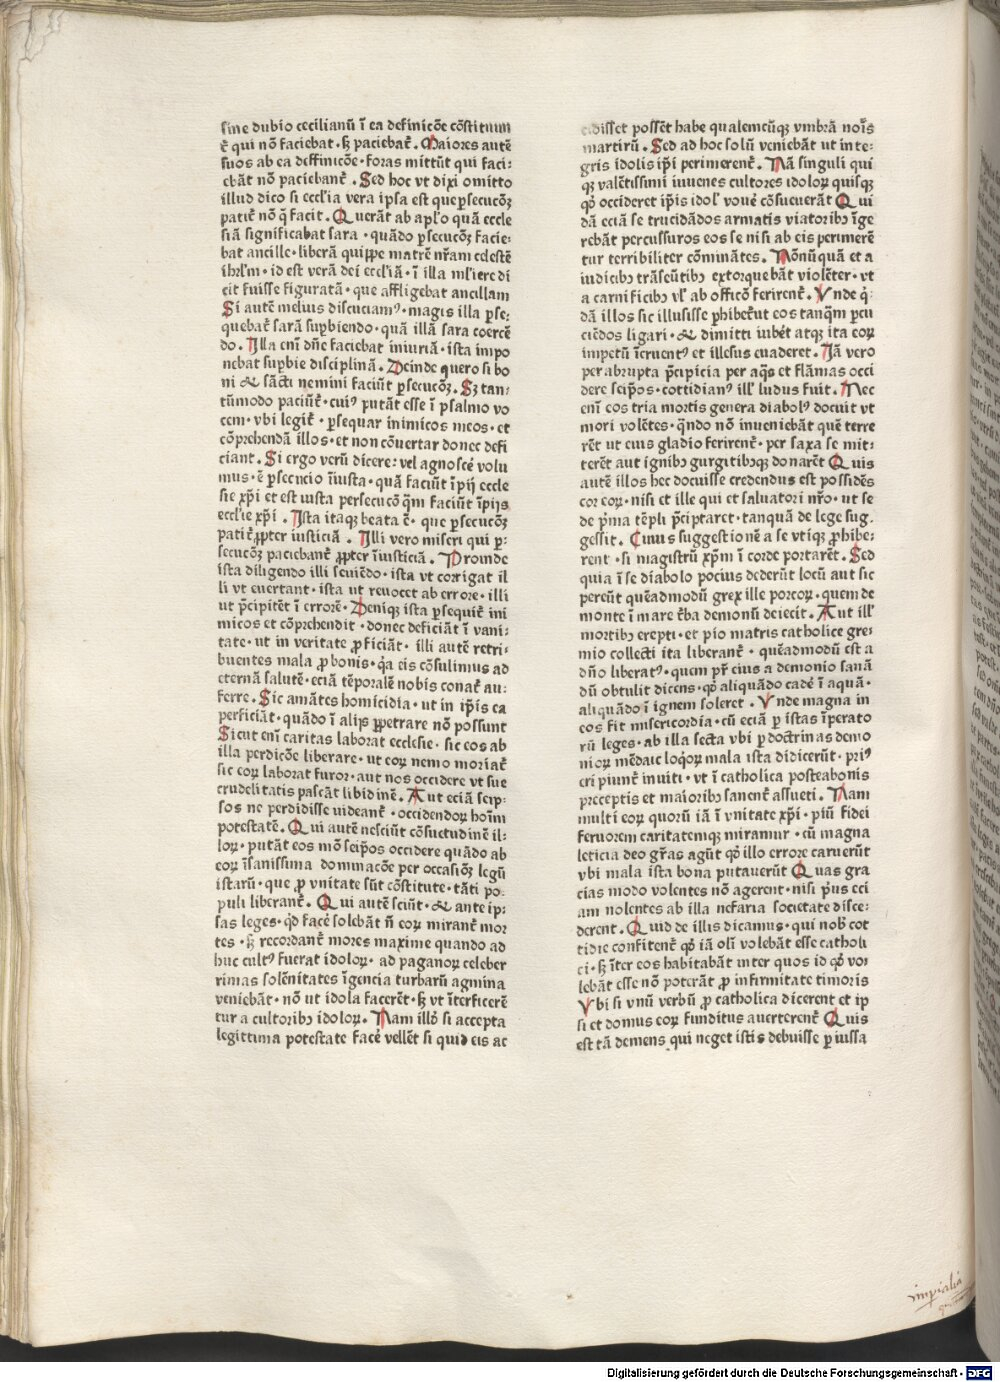 sine dubio cecilianū ī ea definicōe cōstitutum
ē qui nō faciebat · sꝫ paciebat̄ . Maiores autē
suos ab ea deffinicōe · foras mittūt qui faci⸗
ebāt nō paciebant̄ . Sed hoc vt dixi omitto
illud dico si eccl'ia vera ipsa est que ꝑsecucōꝫ
patit̄ nō q̄ facit . Querāt ab apl'o quā eccle
siā significabat sara · quādo ꝑsecucōꝫ facie⸗
bat ancille · liberā quippe matrē nr̄am celestē
ihrl'm · id est verā dei eccl'iā · ī illa ml'iere di
cit fuisse figuratā · que affligebat ancillam
Si autē melius discuciamꝰ · magis illa ꝑse⸗
quebat̄ sarā suꝑbiendo · quā illā sara coercē
do . Illa cnī dn̄e faciebat iniuriā · ista impo
nebat suꝑbie disciplinā . Deinde quero si bo
ni & sācti nemini faciūt ꝑsecucōꝫ . Sꝫ tan⸗
tūmodo paciūt̄ · cuiꝰ putāt esse ī psalmo vo
cem · vbi legit̄ · ꝑsequar inimicos meos · et
cōprehendā illos · et non cōuertar donec defi
ciant . Si ergo verū dicere : vel agnoscē volu
mus · ē ꝑsecucio īiusta · quā faciūt īpij eccle
sie xp̄i et est iusta persecucō qm̄ faciūt īpijs
eccl'ie xp̄i . Ista itaqꝫ beata ē · que ꝑsecucōꝫ
patit̄ ꝓpter iusticiā . Illi vero miseri qui ꝑ⸗
secucōꝫ paciebant̄ ꝓpter īiusticiā . Proinde
ista diligendo illi seuiēdo · ista vt corrigat il
li vt euertant · ista ut reuocet ab errore · illi
ut p̄cipitēt ī errorē . Deniqꝫ ista ꝑsequit̄ ini
micos et cōprehendit · donec deficiāt ī vani⸗
tate · ut in veritate ꝓficiāt · illi autē retri⸗
buentes mala ꝓ bonis · q̄a eis cōsulimus ad
eternā salutē · eciā tēporalē nobis conat̄ au⸗
ferre . Sic amātes homicidia · ut in ip̄is ea
perficiāt · quādo ī alijs ꝑpetrare nō possunt
Sicut enī caritas laborat ecclesie · sic eos ab
illa perdicōe liberare · ut eoꝝ nemo moriat̄
sic eoꝝ laborat furor · aut nos occidere vt sue
crudelitatis pascāt libidinē . Aut eciā seip⸗
sos ne perdidisse uideant̄ · occidendoꝝ hoīm
potestatē . Qui autē nesciūt cōsuetudinē il⸗
loꝝ · putāt eos mō seip̄os occidere quādo ab
eoꝝ īsanissima dominacōe per occasiōꝫ legū
istarū · que ꝓ vnitate sūt cōstitute · tāti po⸗
puli liberant̄ . Qui autē sciūt · & ante ip⸗
sas leges · qd̄ facē solebāt n̄ eoꝝ mirant̄ mor
tes · sꝫ recordant̄ mores maxime quando ad
huc cultꝰ fuerat idoloꝝ · ad paganoꝝ celeber
rimas solēnitates īgencia turbarū agmina
veniebāt · nō ut idola facerēt · sꝫ vt īterficerē
tur a cultoribꝫ idoloꝝ . Nam illꝰ si accepta
legittima potestate facē vellēt si quid eis ac
cidisset possēt habe qualemcūqꝫ vmbrā noīs
martirū . Sed ad hoc solū veniebāt ut inte⸗
gris idolis ip̄i perimerent̄ . Nā singuli qui
qꝫ valētissimi iuuenes cultores idoloꝝ quisqꝫ
qꝰ occideret ip̄is idol' vouē cōsueuerāt Qui
dā eciā se trucidādos armatis viatoribꝫ īge
rebāt percussuros eos se nisi ab eis perimerē
tur terribiliter cōminātes . Nōnūquā et a
iudicibꝫ trāseūtibꝫ extorquebāt violēter · vt
a carnificibꝫ vl' ab officō ferirent̄ . Vnde q̄⸗
dā illos sic illusisse ꝑhibet̄ut eos tanqm̄ ꝑcu
ciēdos ligari · & dimitti iubēt atqꝫ ita eoꝝ
impetū īcruentꝰ et illesus euaderet . Iā vero
per abrupta p̄cipicia per aq̄s et flāmas occi
dere seip̄os · cottidianꝰ ill' ludus fuit . Nec
enī eos tria mortis genera diabolꝰ docuit vt
mori volētes · q̄ndo nō inueniebāt quē terre
rēt ut eius gladio ferirent̄ · per saxa se mit⸗
terēt aut ignibꝫ gurgitibꝫqꝫ donarēt Quis
autē illos hec docuisse credendus est possidēs
cor eoꝝ · nisi et ille qui et saluatori nr̄o · ut se
de p̄ma tēpli p̄ciptaret · tanquā de lege sug⸗
gessit . Cuius suggestionē a se vtiqꝫ ꝓhibe⸗
rent · si magistrū xp̄m ī corde portarēt . Sed
quia ī se diabolo pocius dederūt locū aut sic
pereūt quēadmodū grex ille porcoꝝ · quem de
monte ī mare t̄ba demonū deiecit . Aut ill'
mortibꝫ erepti · et pio matris catholice gre⸗
mio collecti ita liberant̄ · quēadmodū est a
dn̄o liberatꝰ · quem pr̄ eius a demonio sanā
dū obtulit dicens · qꝰ aliquādo cadē ī aquā ·
aliquādo ī ignem soleret . Vnde magna in
eos fit misericordia · cū eciā ꝑ istas īperato
rū leges · ab illa secta vbi ꝑ doctrinas demo
nioꝝ mēdaic loqōꝝ mala ista didicerūt · priꝰ
eripiunt̄ inuiti · vt ī catholica postea bonis
preceptis et maioribꝫ sanent̄ assueti . Nam
multi eoꝝ quorū iā ī vnitate xp̄i · piū fidei
feruorem caritatemqꝫ miramur · cū magna
leticia deo gr̄as agūt qꝰ illo errore caruerūt
vbi mala ista bona putauerūt Quas gra
cias modo volentes nō agerent · nisi prꝰ eci
am nolentes ab illa nefaria societate disce⸗
derent . Quid de illis dicamus · qui nob̄ cot
tidie confitent̄ qꝰ iā olī volebāt esse catholi
ci · sꝫ īter eos habitabāt inter quos id qꝰ vo⸗
lebāt esse nō poterāt ꝓ infirmitate timoris
Vbi si vnū verbū ꝓ catholica dicerent et ip
si et domus eoꝝ funditus auerterent̄ Quis
est tā demens qui neget istis debuisse ꝑ iussa
Digitalisierung gefördert durch die Deutsche Forschungsgemeinschaft - DFG